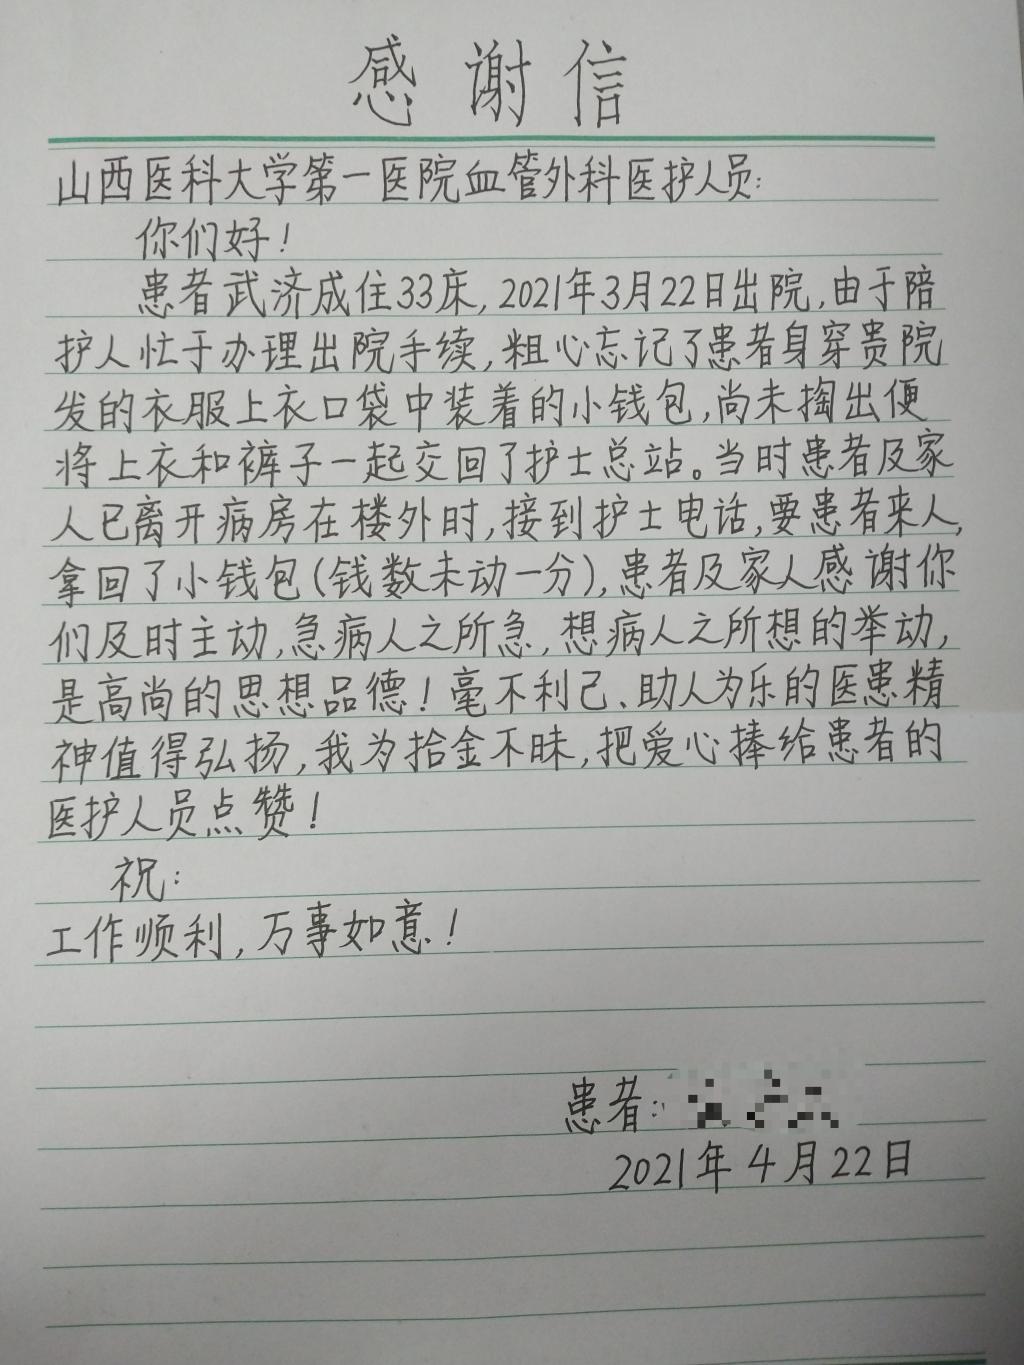 感谢信
山西医科大学第一医院血管外科医护人员:
你们好!
患者武济成住33床,2021年3月22日出院,由于陪
护人忙于办理出院手续,粗心忘记了患者身穿贵院
发的衣服上衣口袋中装着的小钱包,尚未掏出便
将上衣和裤子一起交回了护士总站。当时患者及家
人已离开病房在楼外时,接到护士电话,要患者来人,
拿回了小钱包(钱数未动一分),患者及家人感谢你
们及时主动,急病人之所急,想病人之所想的举动,
是高尚的思想品德!毫不利己、助人为乐的医患精
神值得弘扬,我为拾金不昧,把爱心捧给患者的
医护人员点赞!
祝:
工作顺利,万事如意!
患者:
2021年4月22日